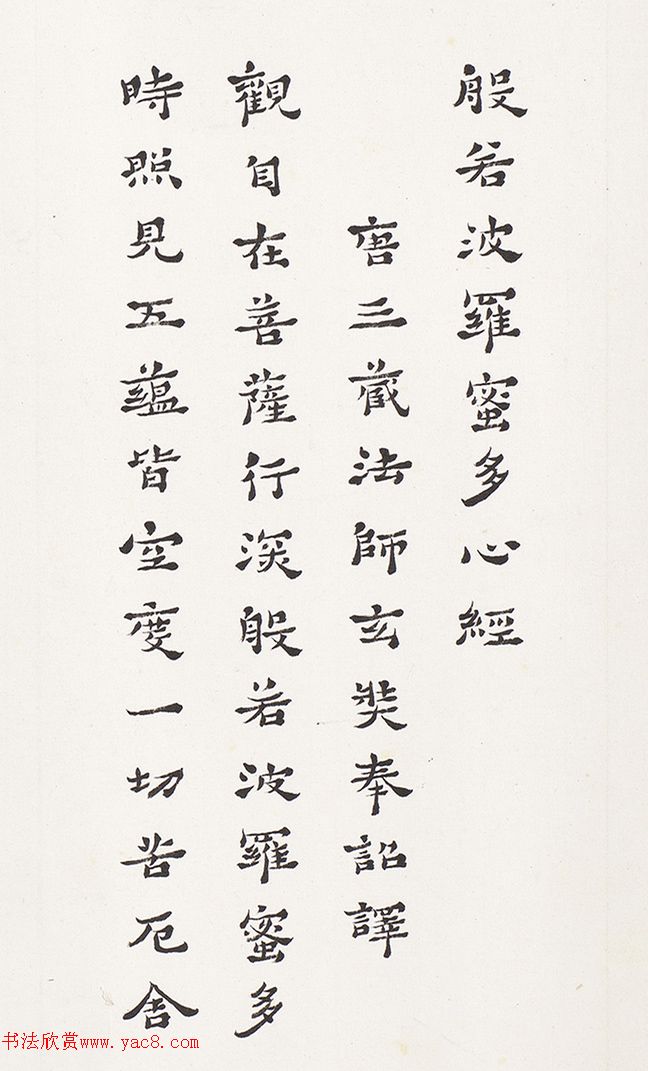 般若波羅蜜多心經
唐三藏法師玄奘奉詔譯
觀自在菩薩行深般若波羅蜜多
時照見五蘊皆空度一切苦厄舍
书法欣赏www.yac8.com